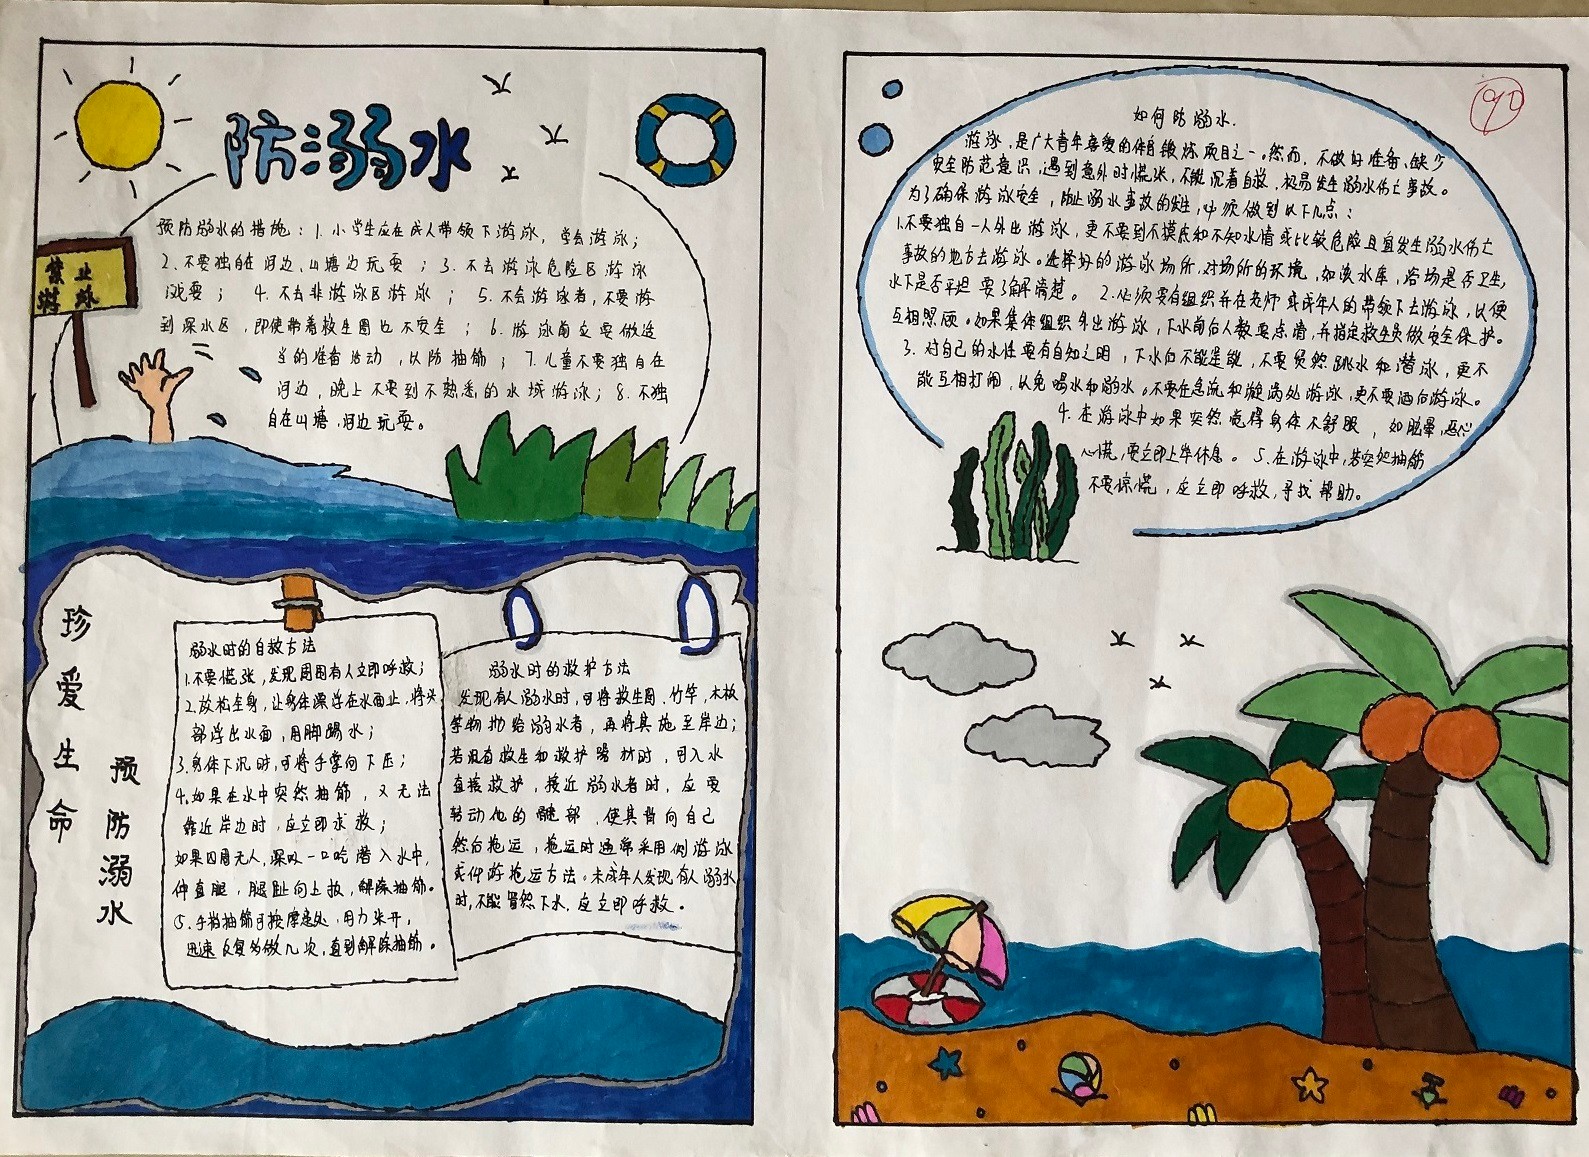 防溺水
禁止
游泳
预防溺水的措施：1.小学生应在成人带领下游泳，学会游泳；
2.不要独自在河边、山塘边玩耍；3.不去游泳危险区游泳
戏耍；4.不去非游泳区游泳；5.不会游泳者，不要游
到深水区，即使带着救生圈也不安全；6.游泳前应要做适
当的准备活动，以防抽筋；7.儿童不要独自在
河边，晚上不要到不熟悉的水域游泳；8.不独
自在山塘，河边玩耍。
珍爱生命
预防溺水
溺水时的自救方法
1.不要慌张，发现周围有人立即呼救；
2.放松全身，让身体漂浮在水面止，将头
部浮出水面，用脚踢水；
3.身体下沉时，可将手掌向下压；
4.如果在水中突然抽筋，又无法
靠近岸边时，应立即求救；
如果四周无人，深吸一口吃潜入水中，
伸直腿，腿趾向上扳，解除抽筋。
5.手指抽筋可按摩患处，用力张开，
迅速反复多做几次，直到解除抽筋。
溺水时的救护方法
发现有人溺水时，可将救生圈、竹竿，木板
等物抛给溺水者，再将其施至岸边；
若没有救生和救护器材时，可入水
直接救护，接近溺水者时，应要
转动他的髋部，使其背向自己
然后拖运，拖运时通常采用侧游泳
或仰游拖运方法。未成年人发现有人溺水
时，不能冒然下水，应立即呼救。
90
如何防溺水.
游泳，是广大青年喜爱的体育锻炼项目之一。然而，不做好准备、缺少
安全防范意识，遇到意外时慌张，不能沉着自救，极易发生溺水伤亡事故。
为了确保游泳安全，防止溺水事故的发生，必须做到以下几点：
1.不要独自一人外出游泳，更不要到不摸底和不知水情或比较危险且宜发生溺水伤亡
事故的地方去游泳。选择好的游泳场所，对场所的环境，如该水库，浴场是否卫生，
水下是否平坦要了解清楚。 2.必须要有组织并在老师或成年人的带领下去游泳，以便
互相照顾。如果集体组织外出游泳，下水前后人数要点清，并指定救生员做安全保护。
3.对自己的水性要有自知之明，下水后不能逞能，不要贸然跳水和潜泳，更不
能互相打闹，以免喝水和溺水。不要在急流和漩涡处游泳，更不要酒后游泳。
4.在游泳中如果突然觉得身体不舒服，如眩晕，恶心
心慌，要立即上岸休息。 5.在游泳中，若突然抽筋
不要惊慌，应立即呼救，寻找帮助。